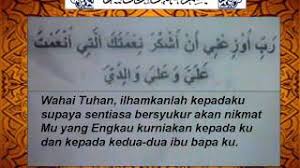 رَبِّ أَوْزِعْنِي أَنْ أَشْكُرَ نِعْمَتَكَ الَّتِي أَنْعَمْتَ
عَلَيَّ وَعَلَىٰ وَالِدَيَّ
Wahai Tuhan, ilhamkanlah kepadaku
supaya sentiasa bersyukur akan nikmat
Mu yang Engkau kurniakan kepada ku
dan kepada kedua-dua ibu bapa ku.